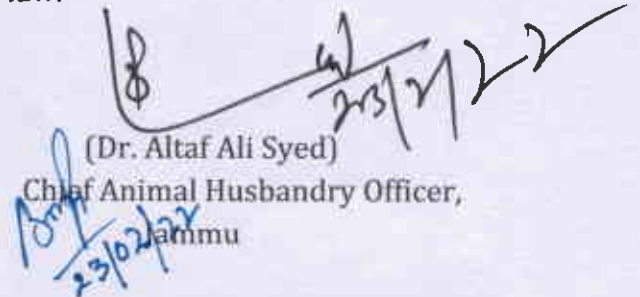 23/2/22
(Dr. Altaf Ali Syed)
Chief Animal Husbandry Officer,
Jammu
23/02/22